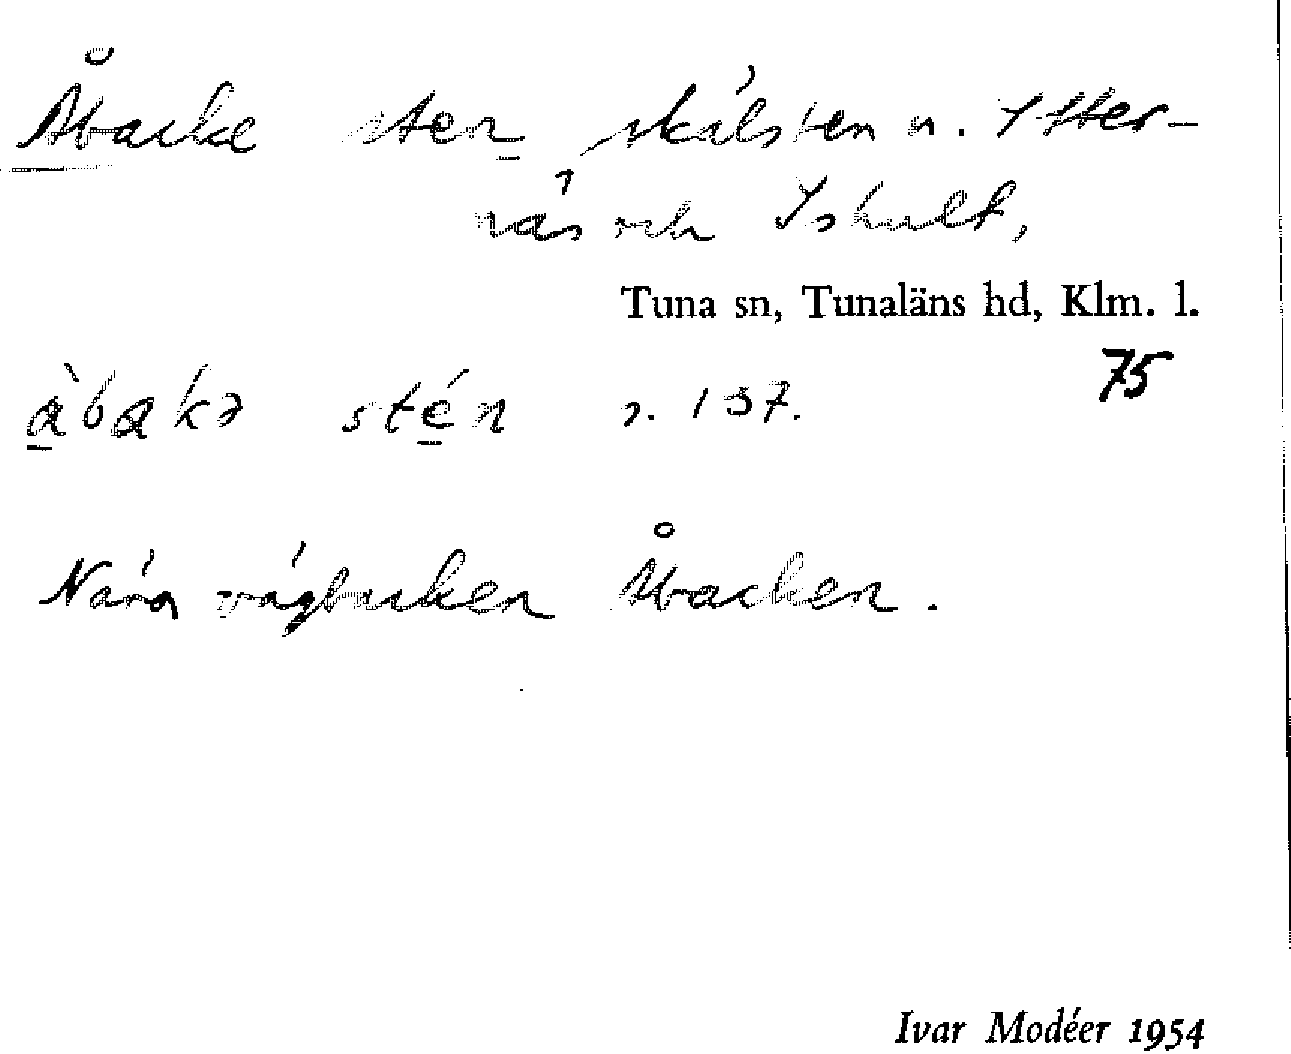 Åbacke sten skälsten n. Ytter-
näs och Ishult,
Tuna sn, Tunaläns hd, Klm. l.
75
àbakə stén s. 137.
Nära vägbacken Åbacken.
Ivar Modéer 1954